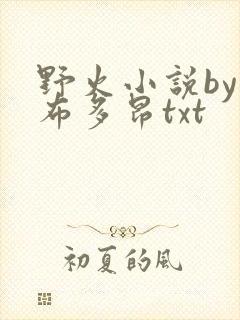 野火小說by
布多昂txt
初夏的風